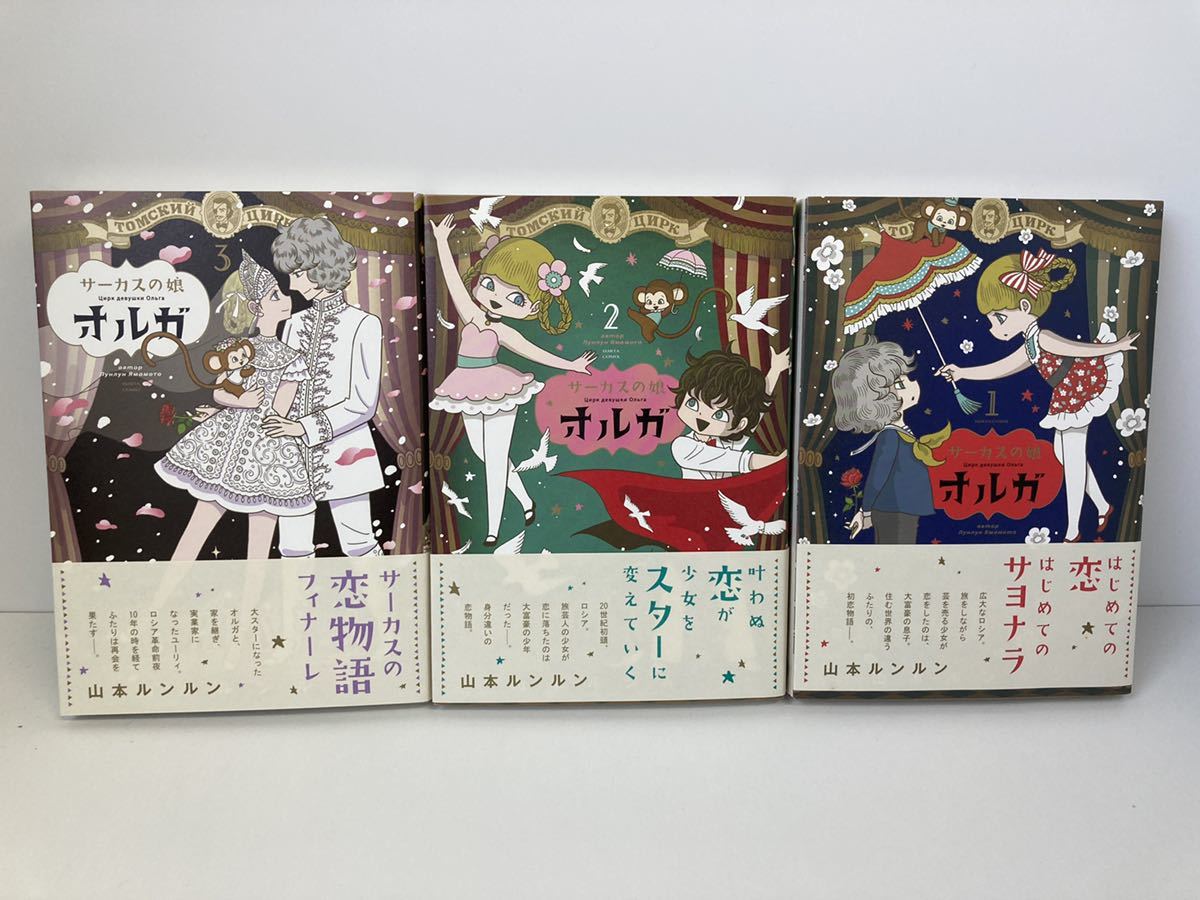 ТОМСКИЙ ЦИРК
3
サーカスの娘
Цирк девушки Ольга
オルガ
автор
Лунлун Ямамото
サーカスの
恋物語
フィナーレ
大スターになった
オルガと、
家を継ぎ、
実業家に
なったユーリィ。
ロシア革命前夜
10年の時を経て
ふたりは再会を
果たす――。
山本ルンルン
ТОМСКИЙ ЦИРК
2
автор
Лунлун Ямамото
HARTA
COMIX
サーカスの娘
Цирк девушки Ольга
オルガ
叶わぬ
恋が
少女を
スターに
変えていく
20世紀初頭、
ロシア。
旅芸人の少女が
恋に落ちたのは
大富豪の少年
だった――。
身分違いの
恋物語。
山本ルンルン
ТО
ЦИРК
1
サーカスの娘
Цирк девушки Ольга
オルガ
автор
Лунлун Ямамото
はじめての
恋
はじめての
サヨナラ
広大なロシア。
旅をしながら
芸を売る少女が
恋をしたのは、
大富豪の息子。
住む世界の違う
ふたりの、
初恋物語――。
山本ルンルン